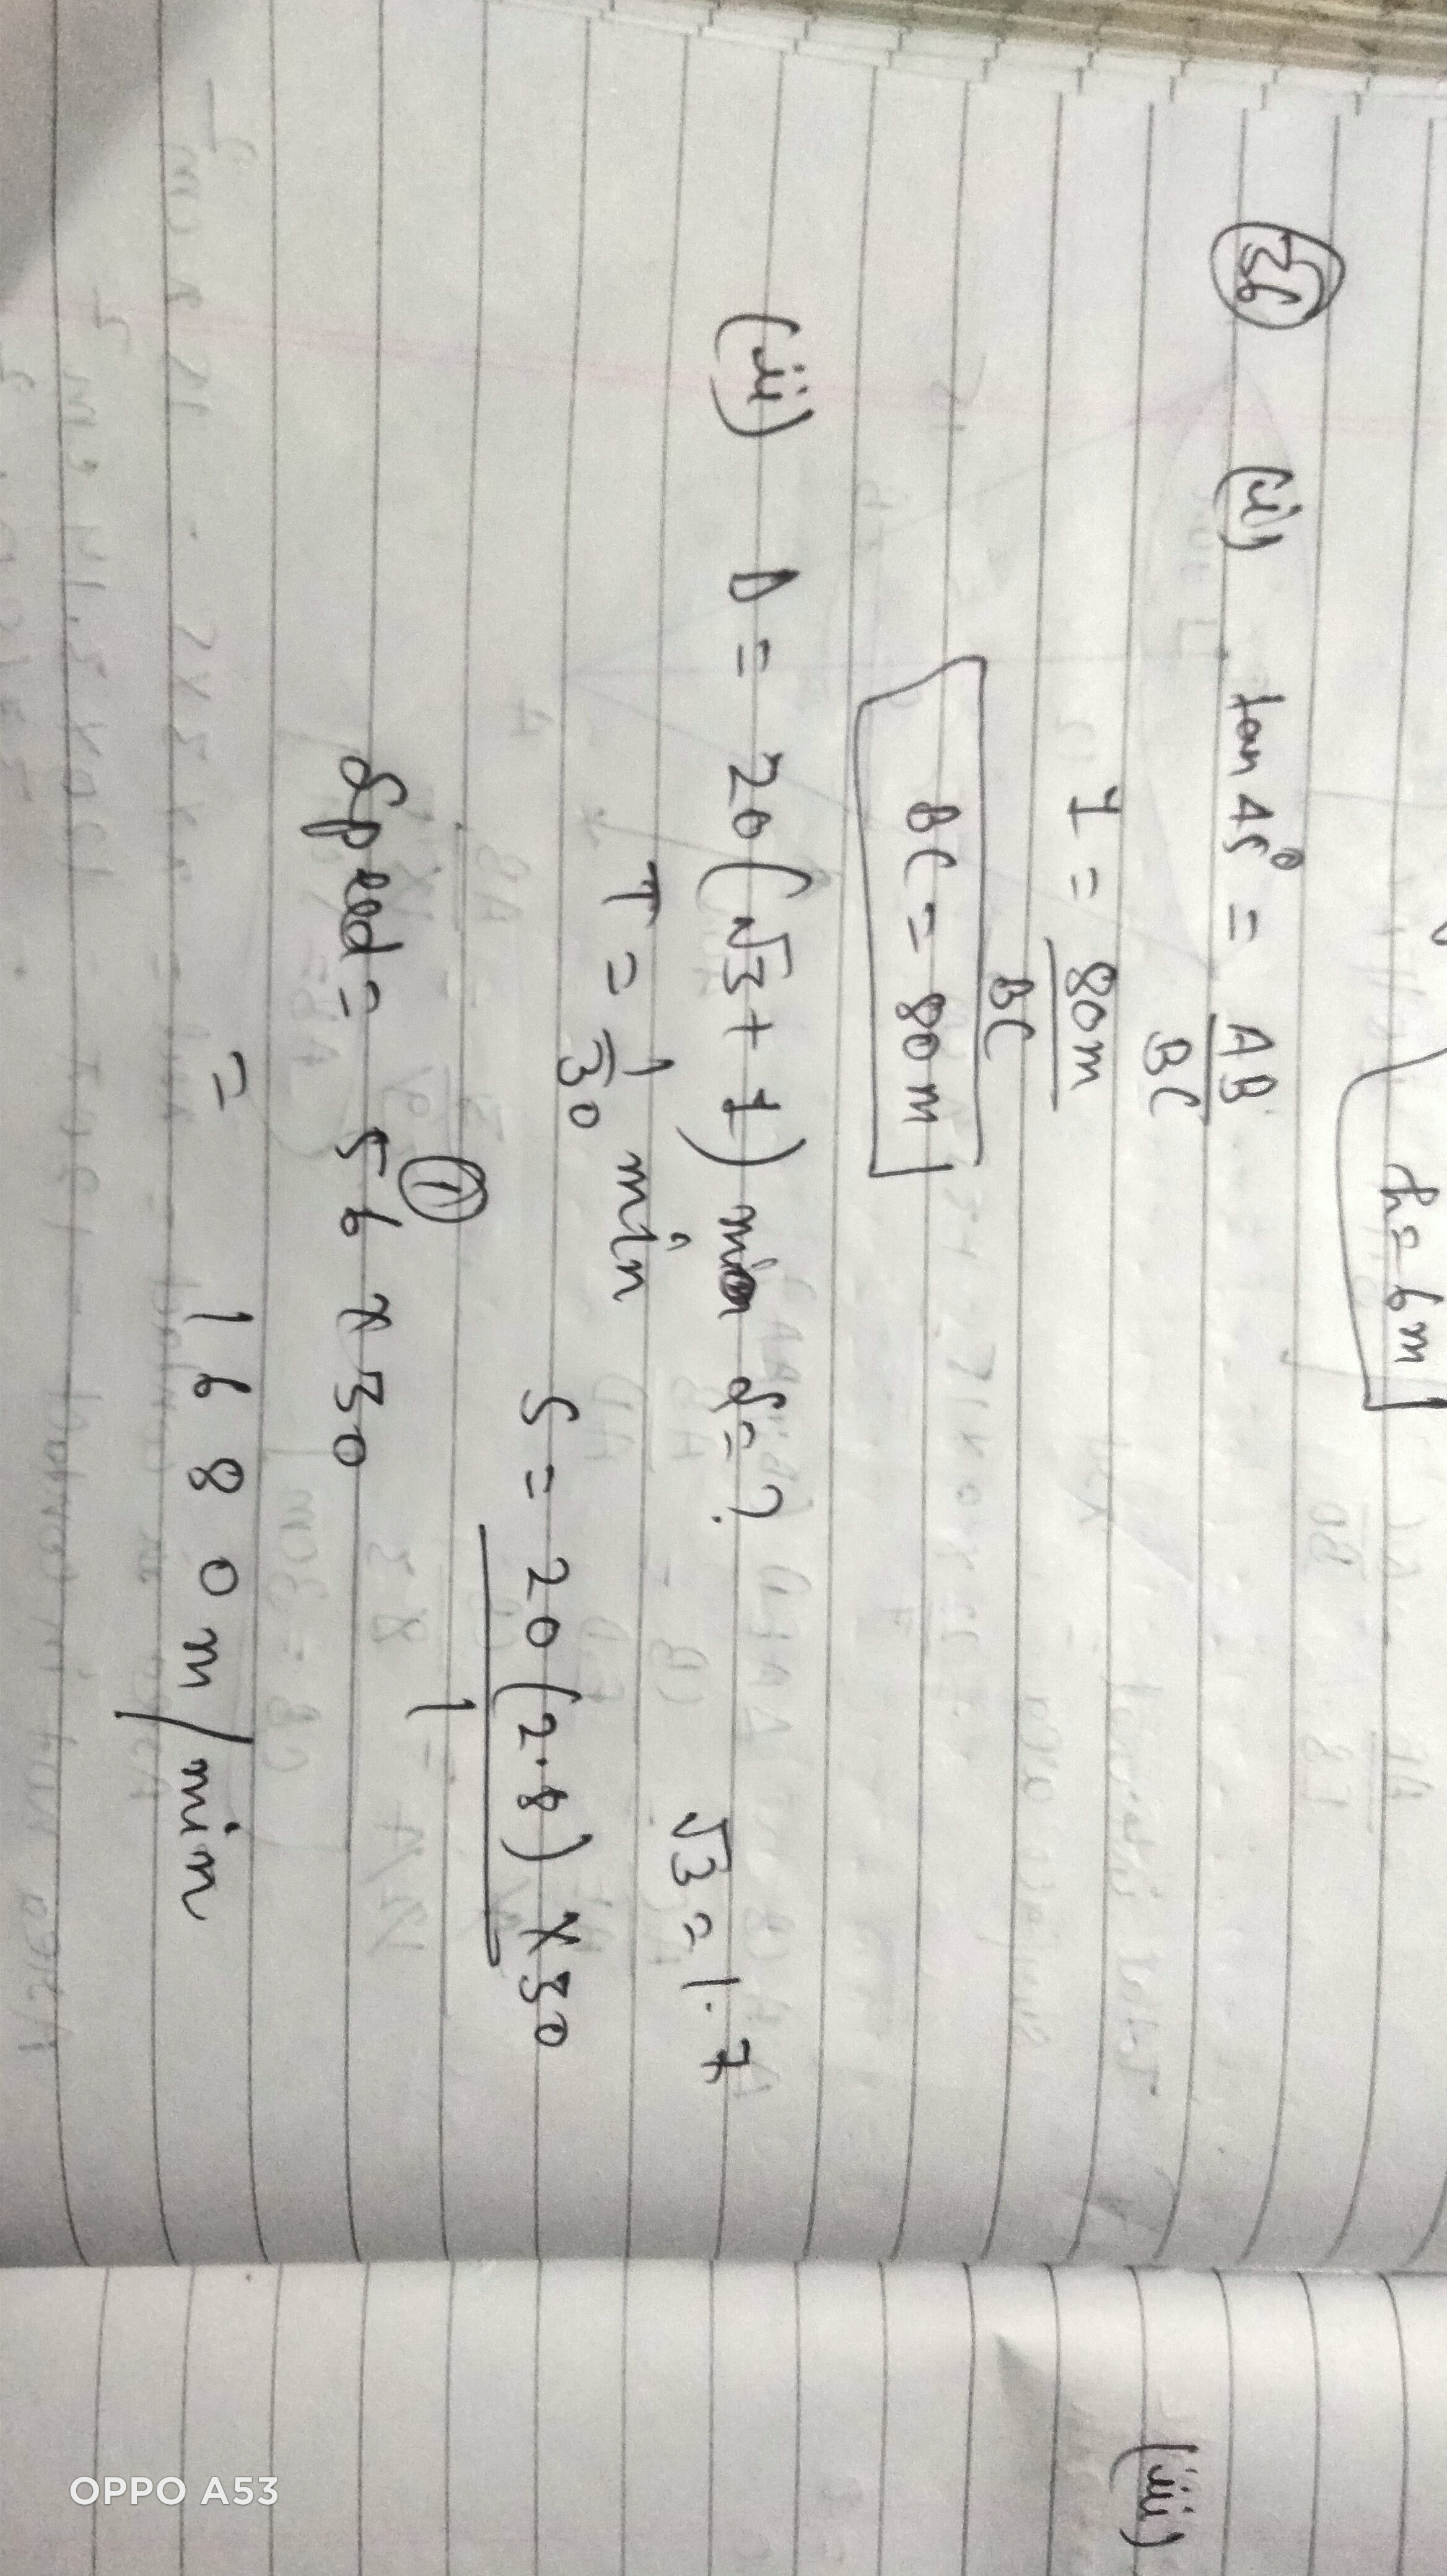 h = 6m
36 (ii) tan 45° = AB/BC
1 = 80m/BC
BC = 80m
(iii) D = 20(√3 + 1) min S = ?
√3 = 1.7
T = 1/30 min
S = 20(2.8) × 30 / 1
①
Speed = 56 × 30
= 1680 m/min
(iii)
OPPO A53